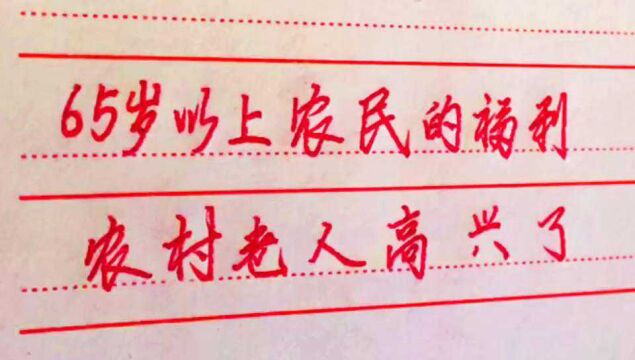 65岁以上农民的福利
农村老人高兴了